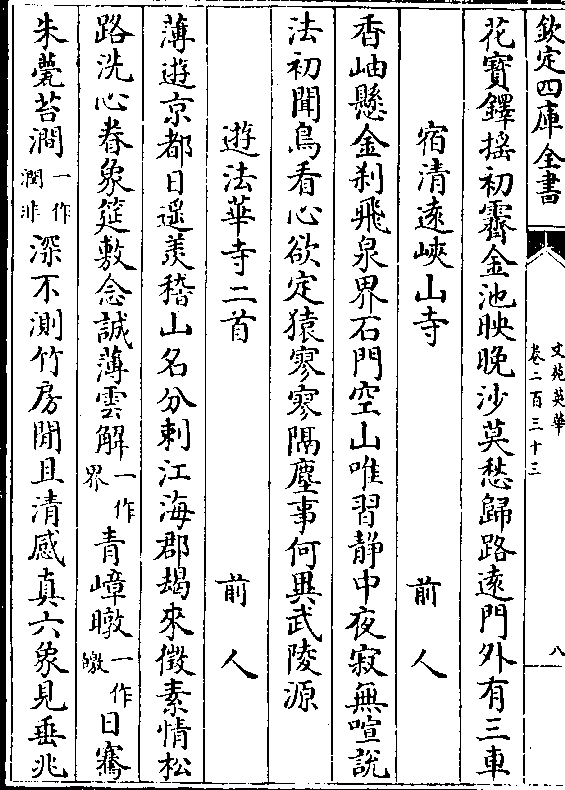 欽定四庫全書
文苑英華
卷二百三十三
八
花寶鐸搖初霽金池映晚沙莫愁歸路遠門外有三車
宿清遠峽山寺 前人
香岫懸金刹飛泉界石門空山唯習静中夜寂無喧說
法初聞鳥看心欲定猿寥寥隔塵事何異武陵源
遊法華寺二首 前人
薄遊京都日遥羨稽山名分刺江海郡朅來徵素情松
路洗心眷象筵敷念誠薄雲解一作界青嶂暾一作皦日騫
朱甍苔澗一作潤非深不測竹房閒且清感真六象見垂兆